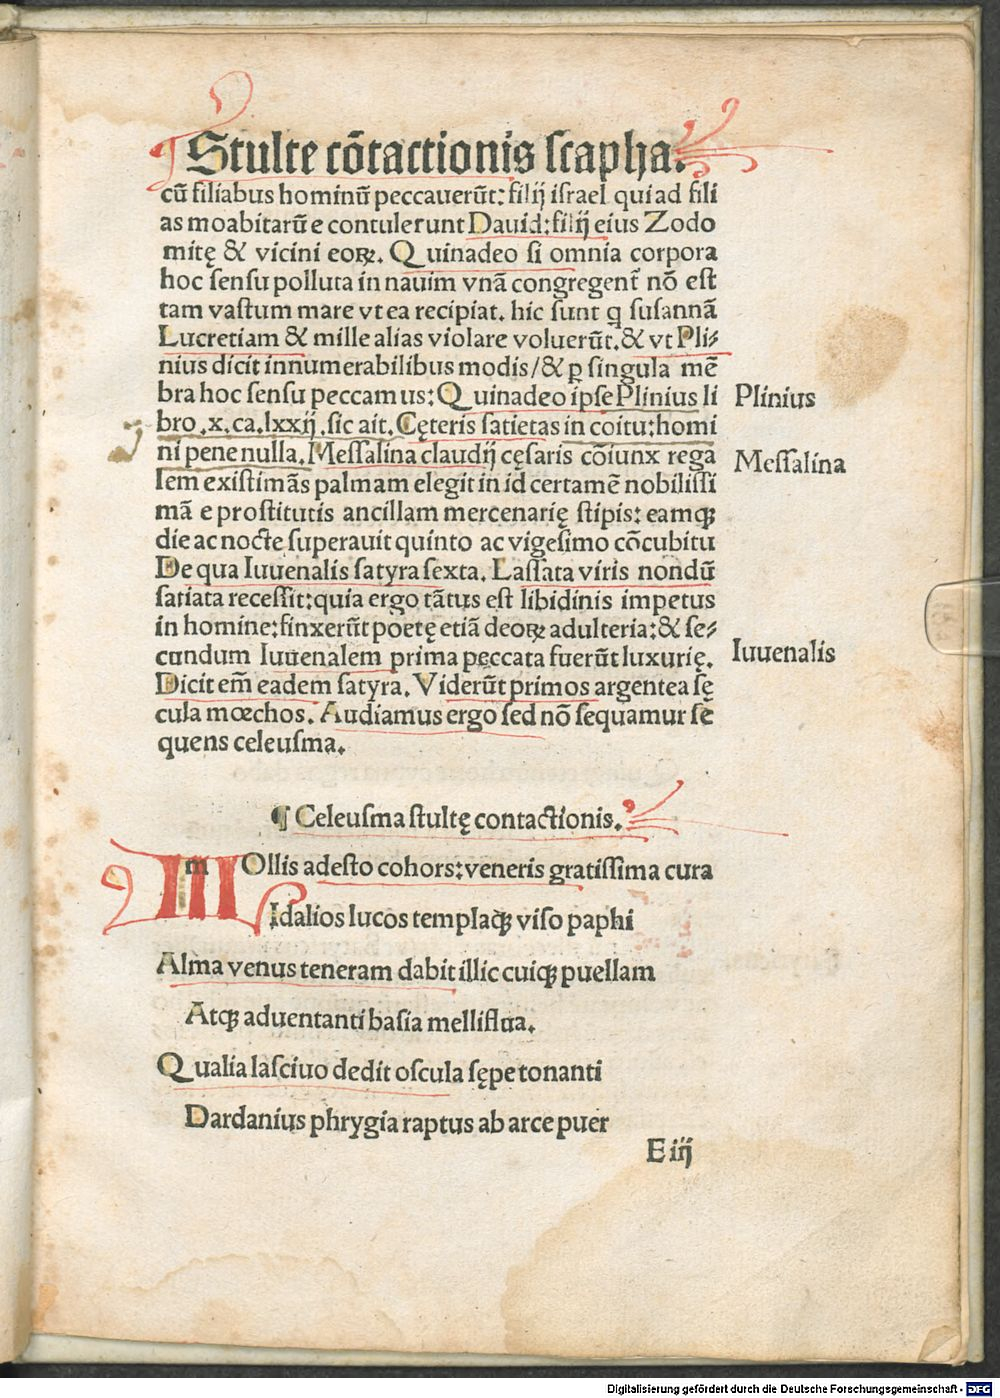 Stulte cōtactionis scapha.
cū filiabus hominū peccauerūt: filij israel qui ad fili
as moabitarū e contulerunt Dauid: filij eius Zodo
mitę & vicini eoꝝ. Quinadeo si omnia corpora
hoc sensu polluta in nauim vnā congregent̄ nō est
tam vastum mare vt ea recipiat. hic sunt q susannā
Lucretiam & mille alias violare voluerūt. & vt Pli⸗
nius dicit innumerabilibus modis/& ꝑ singula mē
bra hoc sensu peccamus: Quinadeo ipse Plinius li
bro .x. ca. lxxij. sic ait. Cęteris satietas in coitu: homi
ni pene nulla. Messalina claudij cęsaris cōiunx rega
lem existimās palmam elegit in id certamē nobilissi
mā e prostitutis ancillam mercenarię stipis: eamqꝫ
die ac nocte superauit quinto ac vigesimo cōcubitu
De qua Iuuenalis satyra sexta. Lassata viris nondū
satiata recessit: quia ergo tātus est libidinis impetus
in homine: finxerūt poetę etiā deoꝝ adulteria: & se⸗
cundum Iuuenalem prima peccata fuerūt luxurię.
Dicit em̄ eadem satyra. Viderūt primos argentea sę
cula mœchos. Audiamus ergo sed nō sequamur se
quens celeusma.
Plinius
Messalina
Iuuenalis
¶ Celeusma stultę contactionis.
MOllis adesto cohors: veneris gratissima cura
Idalios lucos templaqꝫ viso paphi
Alma venus teneram dabit illic cuiqꝫ puellam
Atqꝫ aduentanti basia melliflua.
Qualia lasciuo dedit oscula sępe tonanti
Dardanius phrygia raptus ab arce puer
E iij
Digitalisierung gefördert durch die Deutsche Forschungsgemeinschaft - DFG